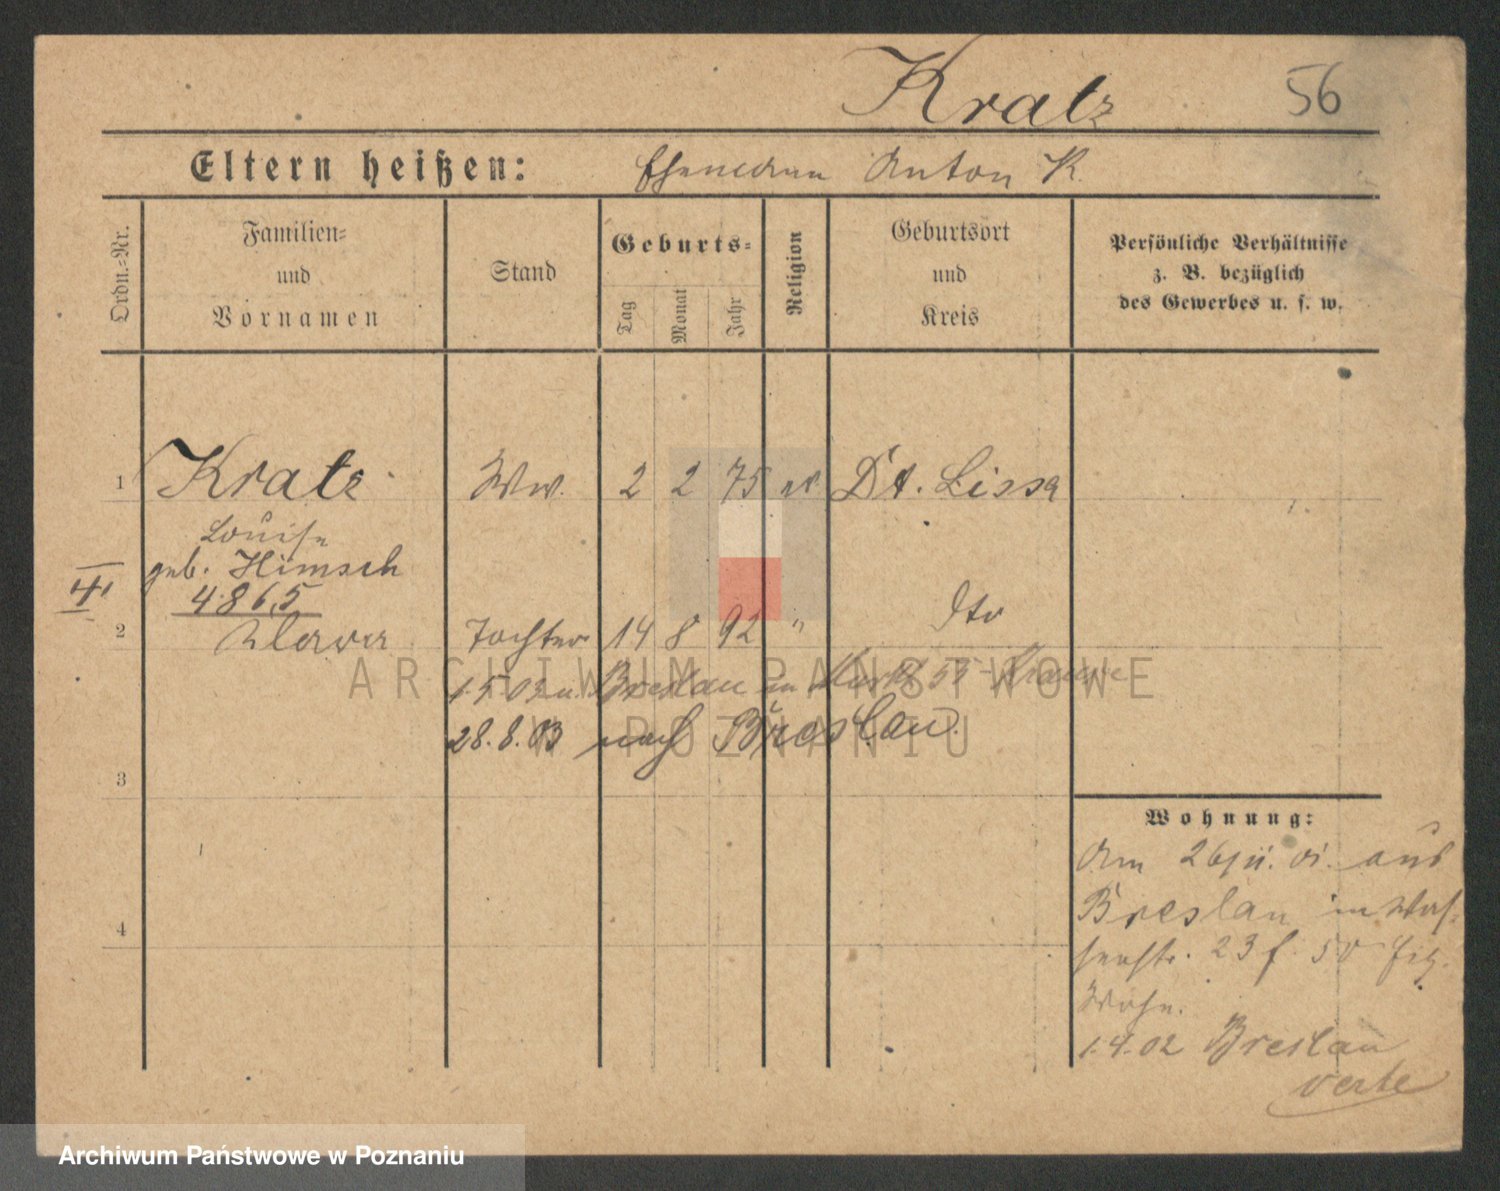 Kratz 56
Eltern heißen: Ehemann Anton K.
Ordn.-Nr.
Familien-
und
Vornamen
Stand
Geburts-
Tag
Monat
Jahr
Religion
Geburtsort
und
Kreis
Persönliche Verhältnisse
z. B. bezüglich
des Gewerbes u. s. w.
1 Kratz Ww. 2 2 75 ev. Dt. Lissa
Louise
geb. Himsch
4865
2 Klara Tochter 14 8 92 " dto
1.5.03 v. Breslau in Markt 55 Krause
28.8.03 nach Breslau.
3
4
Wohnung:
Am 26/11. 01. aus
Breslau in Was-
serstr. 23 f. 50
Wohn.
1.4.02 Breslau
verte
ARCHIWUM PAŃSTWOWE
W POZNANIU
Archiwum Państwowe w Poznaniu